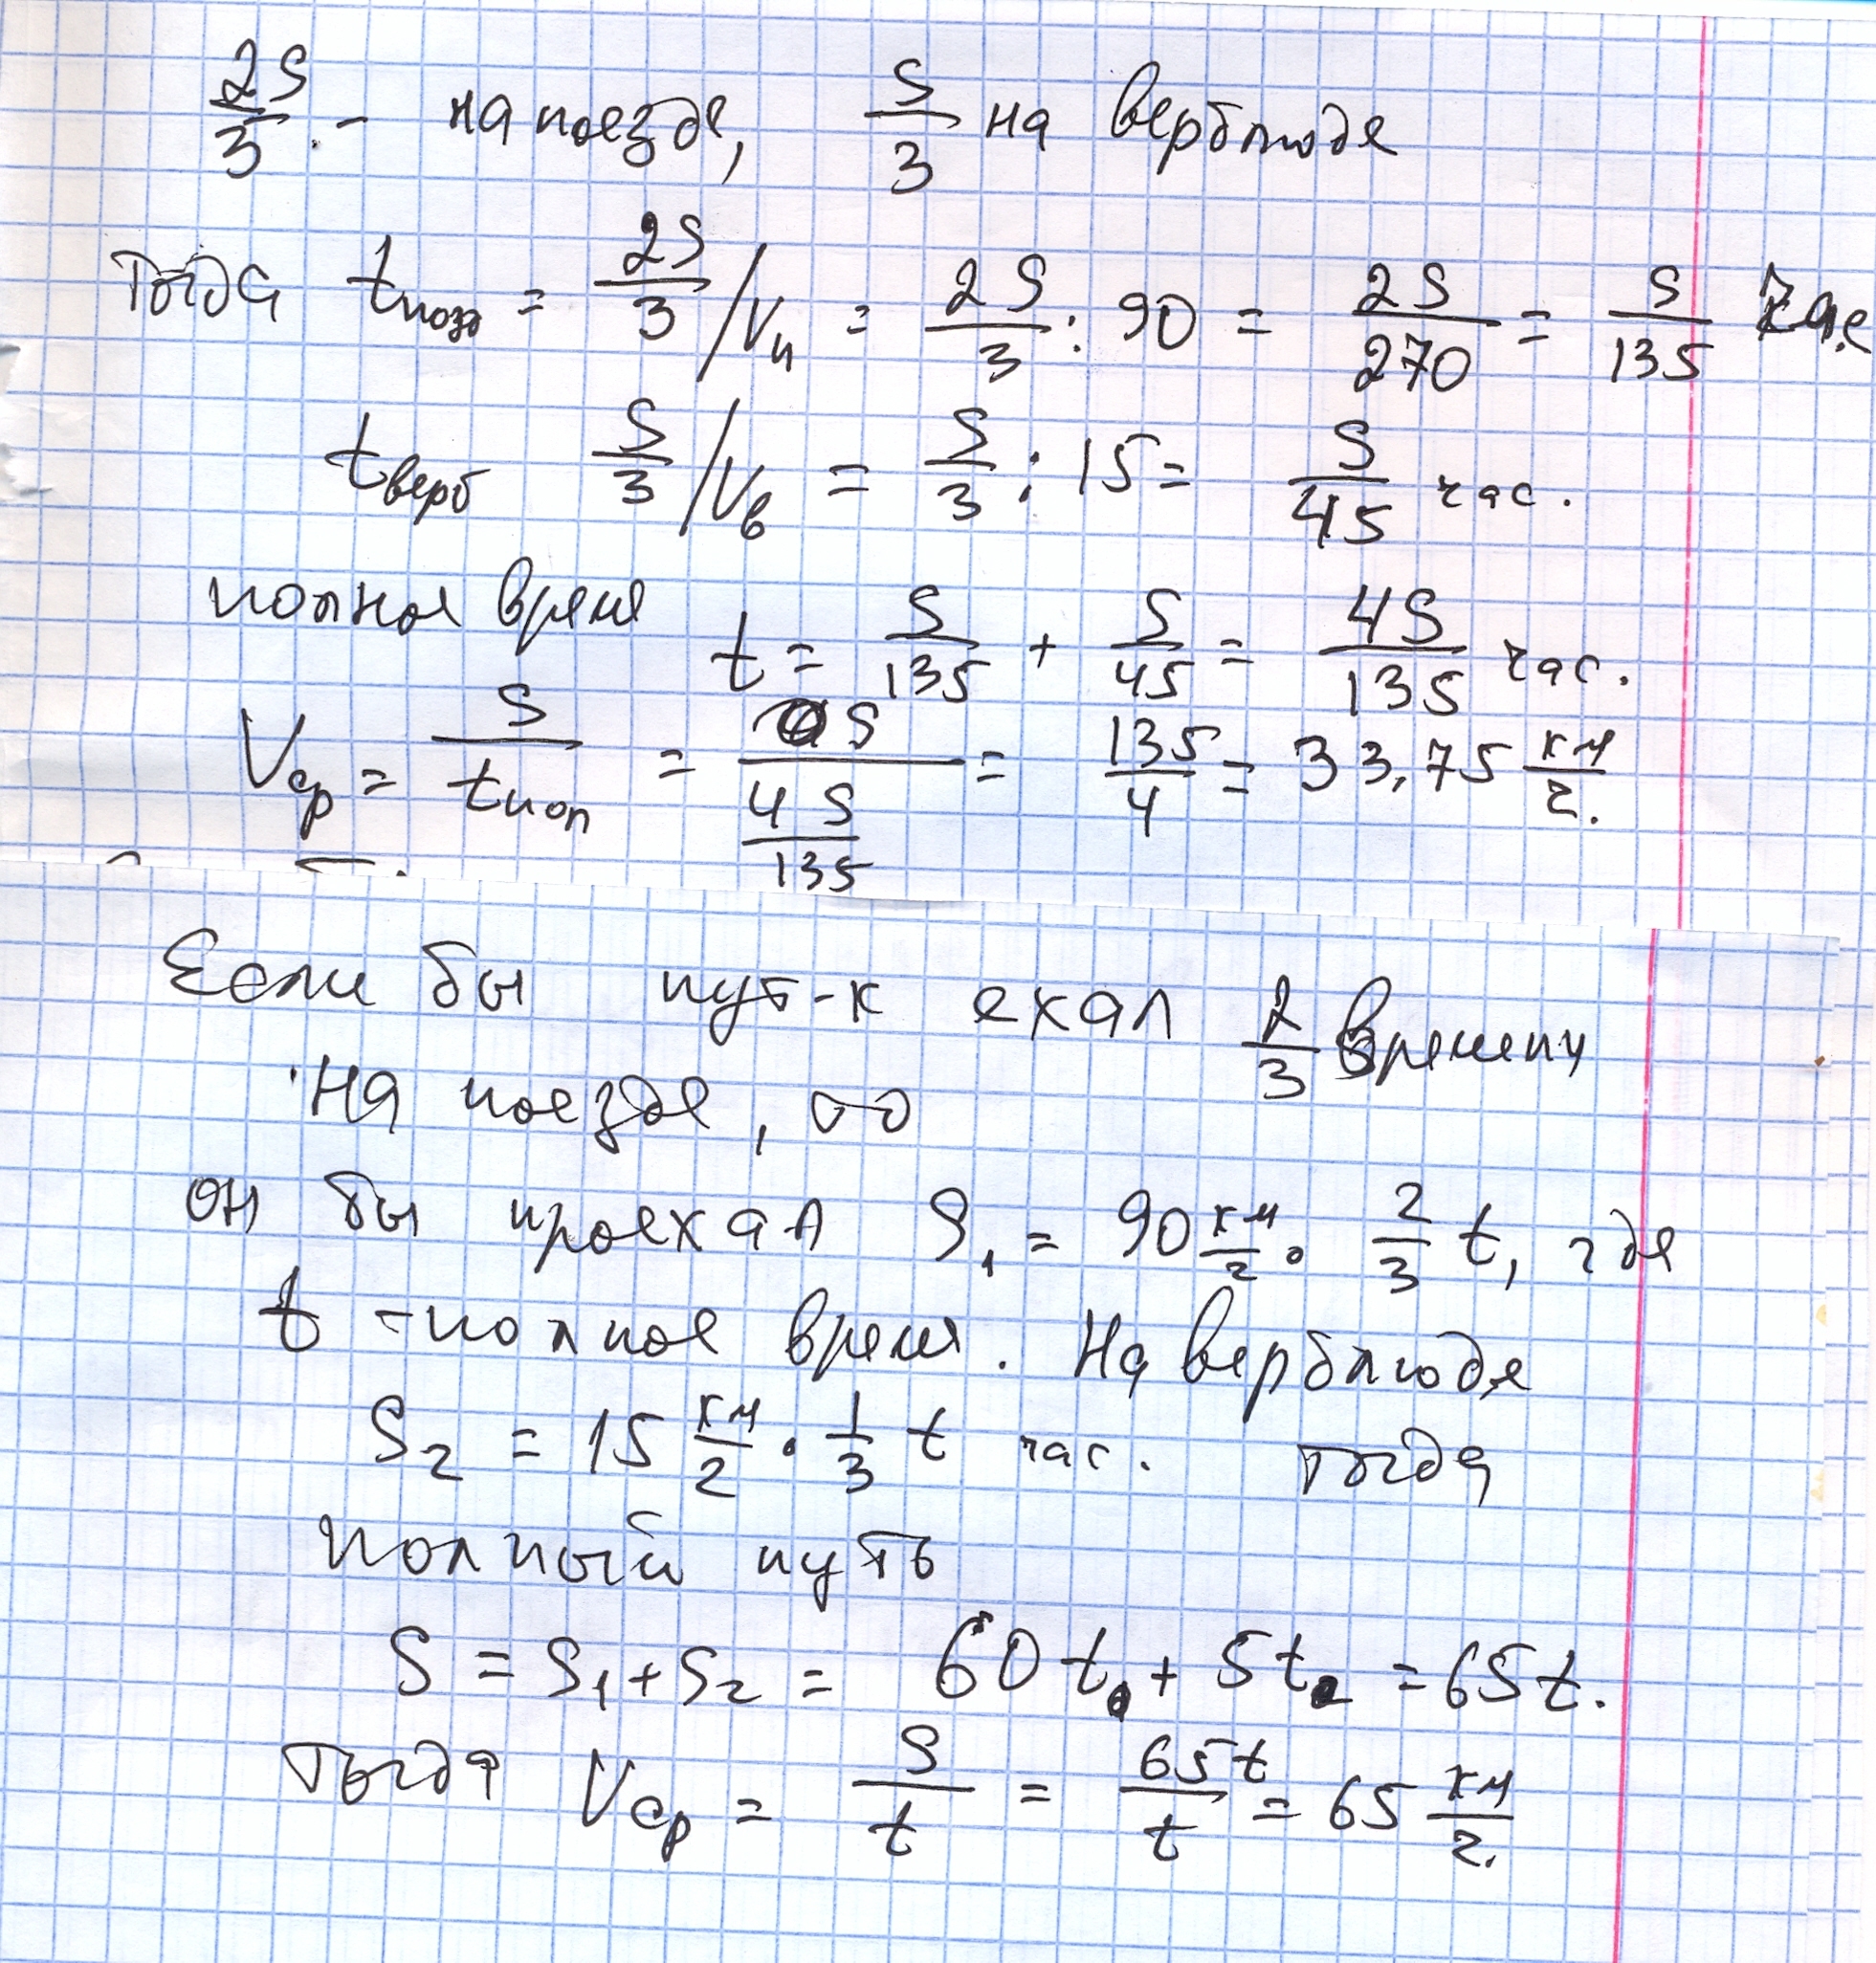 2S/3 - на поезде, S/3 на верблюде
Тогда tпоезд = 2S/3 / Vп = 2S/3 : 90 = 2S/270 = S/135 час
tверб S/3 / Vв = S/3 : 15 = S/45 час.
полное время t = S/135 + S/45 = 4S/135 час.
Vср = S/tпол = S/(4S/135) = 135/4 = 33,75 км/ч.
Если бы пут-к ехал 2/3 времени
на поезде, то
он бы проехал S₁ = 90 км/ч · 2/3 t, где
t - полное время. На верблюде
S₂ = 15 км/ч · 1/3 t час. тогда
полный путь
S = S₁ + S₂ = 60t + 5t = 65t.
тогда Vср = S/t = 65t/t = 65 км/ч.